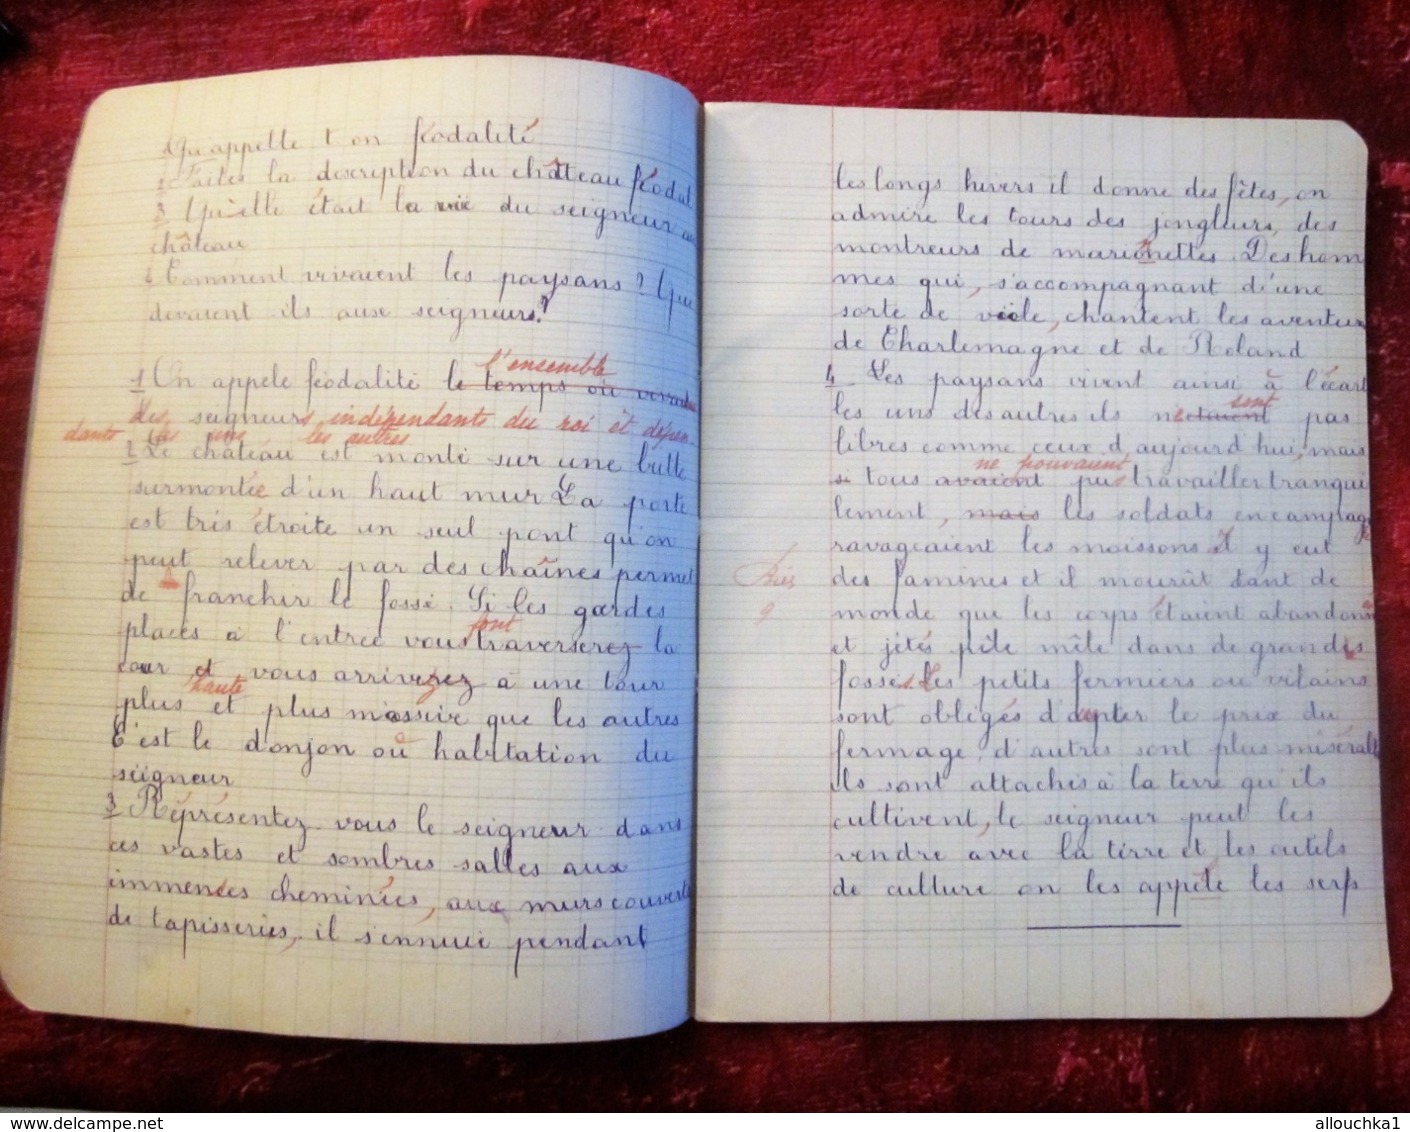 1 Qu'appelle t on féodalité
2 Faites la description du château féodal
3 Qu'elle était la vie du seigneur au
château
4 Comment vivaient les paysans? Que
devaient ils aux seigneurs?
l'ensemble
1 On appele féodalité le temps où
des seigneurs indépendants du roi et dépen-
dants les uns les autres
2 Le château est monté sur une butte
surmontée d'un haut mur La porte
est très étroite un seul pont qu'on
peut relever par des chaînes permet
de franchir le fossé. Si les gardes
font
placés à l'entrée vous traverserez la
cour et vous arriverez à une tour
haute
plus et plus massive que les autres
C'est le donjon où habitation du
seigneur
3 Réprésentez-vous le seigneur dans
ces vastes et sombres salles aux
immenses cheminées, aux murs couverts
de tapisseries, il s'ennuie pendant
les longs hivers il donne des fêtes, on
admire les tours des jongleurs, des
montreurs de marionettes. Des hom
mes qui, s'accompagnant d'une
sorte de viole, chantent les aventures
de Charlemagne et de Roland
4 Les paysans vivent ainsi à l'écart
sont
les uns des autres ils n'étaient pas
libres comme ceux d'aujourd'hui, mais
ne pouvaient
si tous avaient pus travailler tranqui
lement, mais les soldats en campagne
ravageaient les moissons Il y eut
des famines et il mourût tant de
monde que les corps étaient abandonnés
et jetés pêle mêle dans de grandes
fosses. Les petits fermiers ou vilains
sont obligés d'acepter le prix du
fermage, d'autres sont plus misérables
Ils sont attachés à la terre qu'ils
cultivent, le seigneur peut les
vendre avec la terre et les outils
de culture on les appele les serfs
bien
9
www.delcampe.net
allouchka1